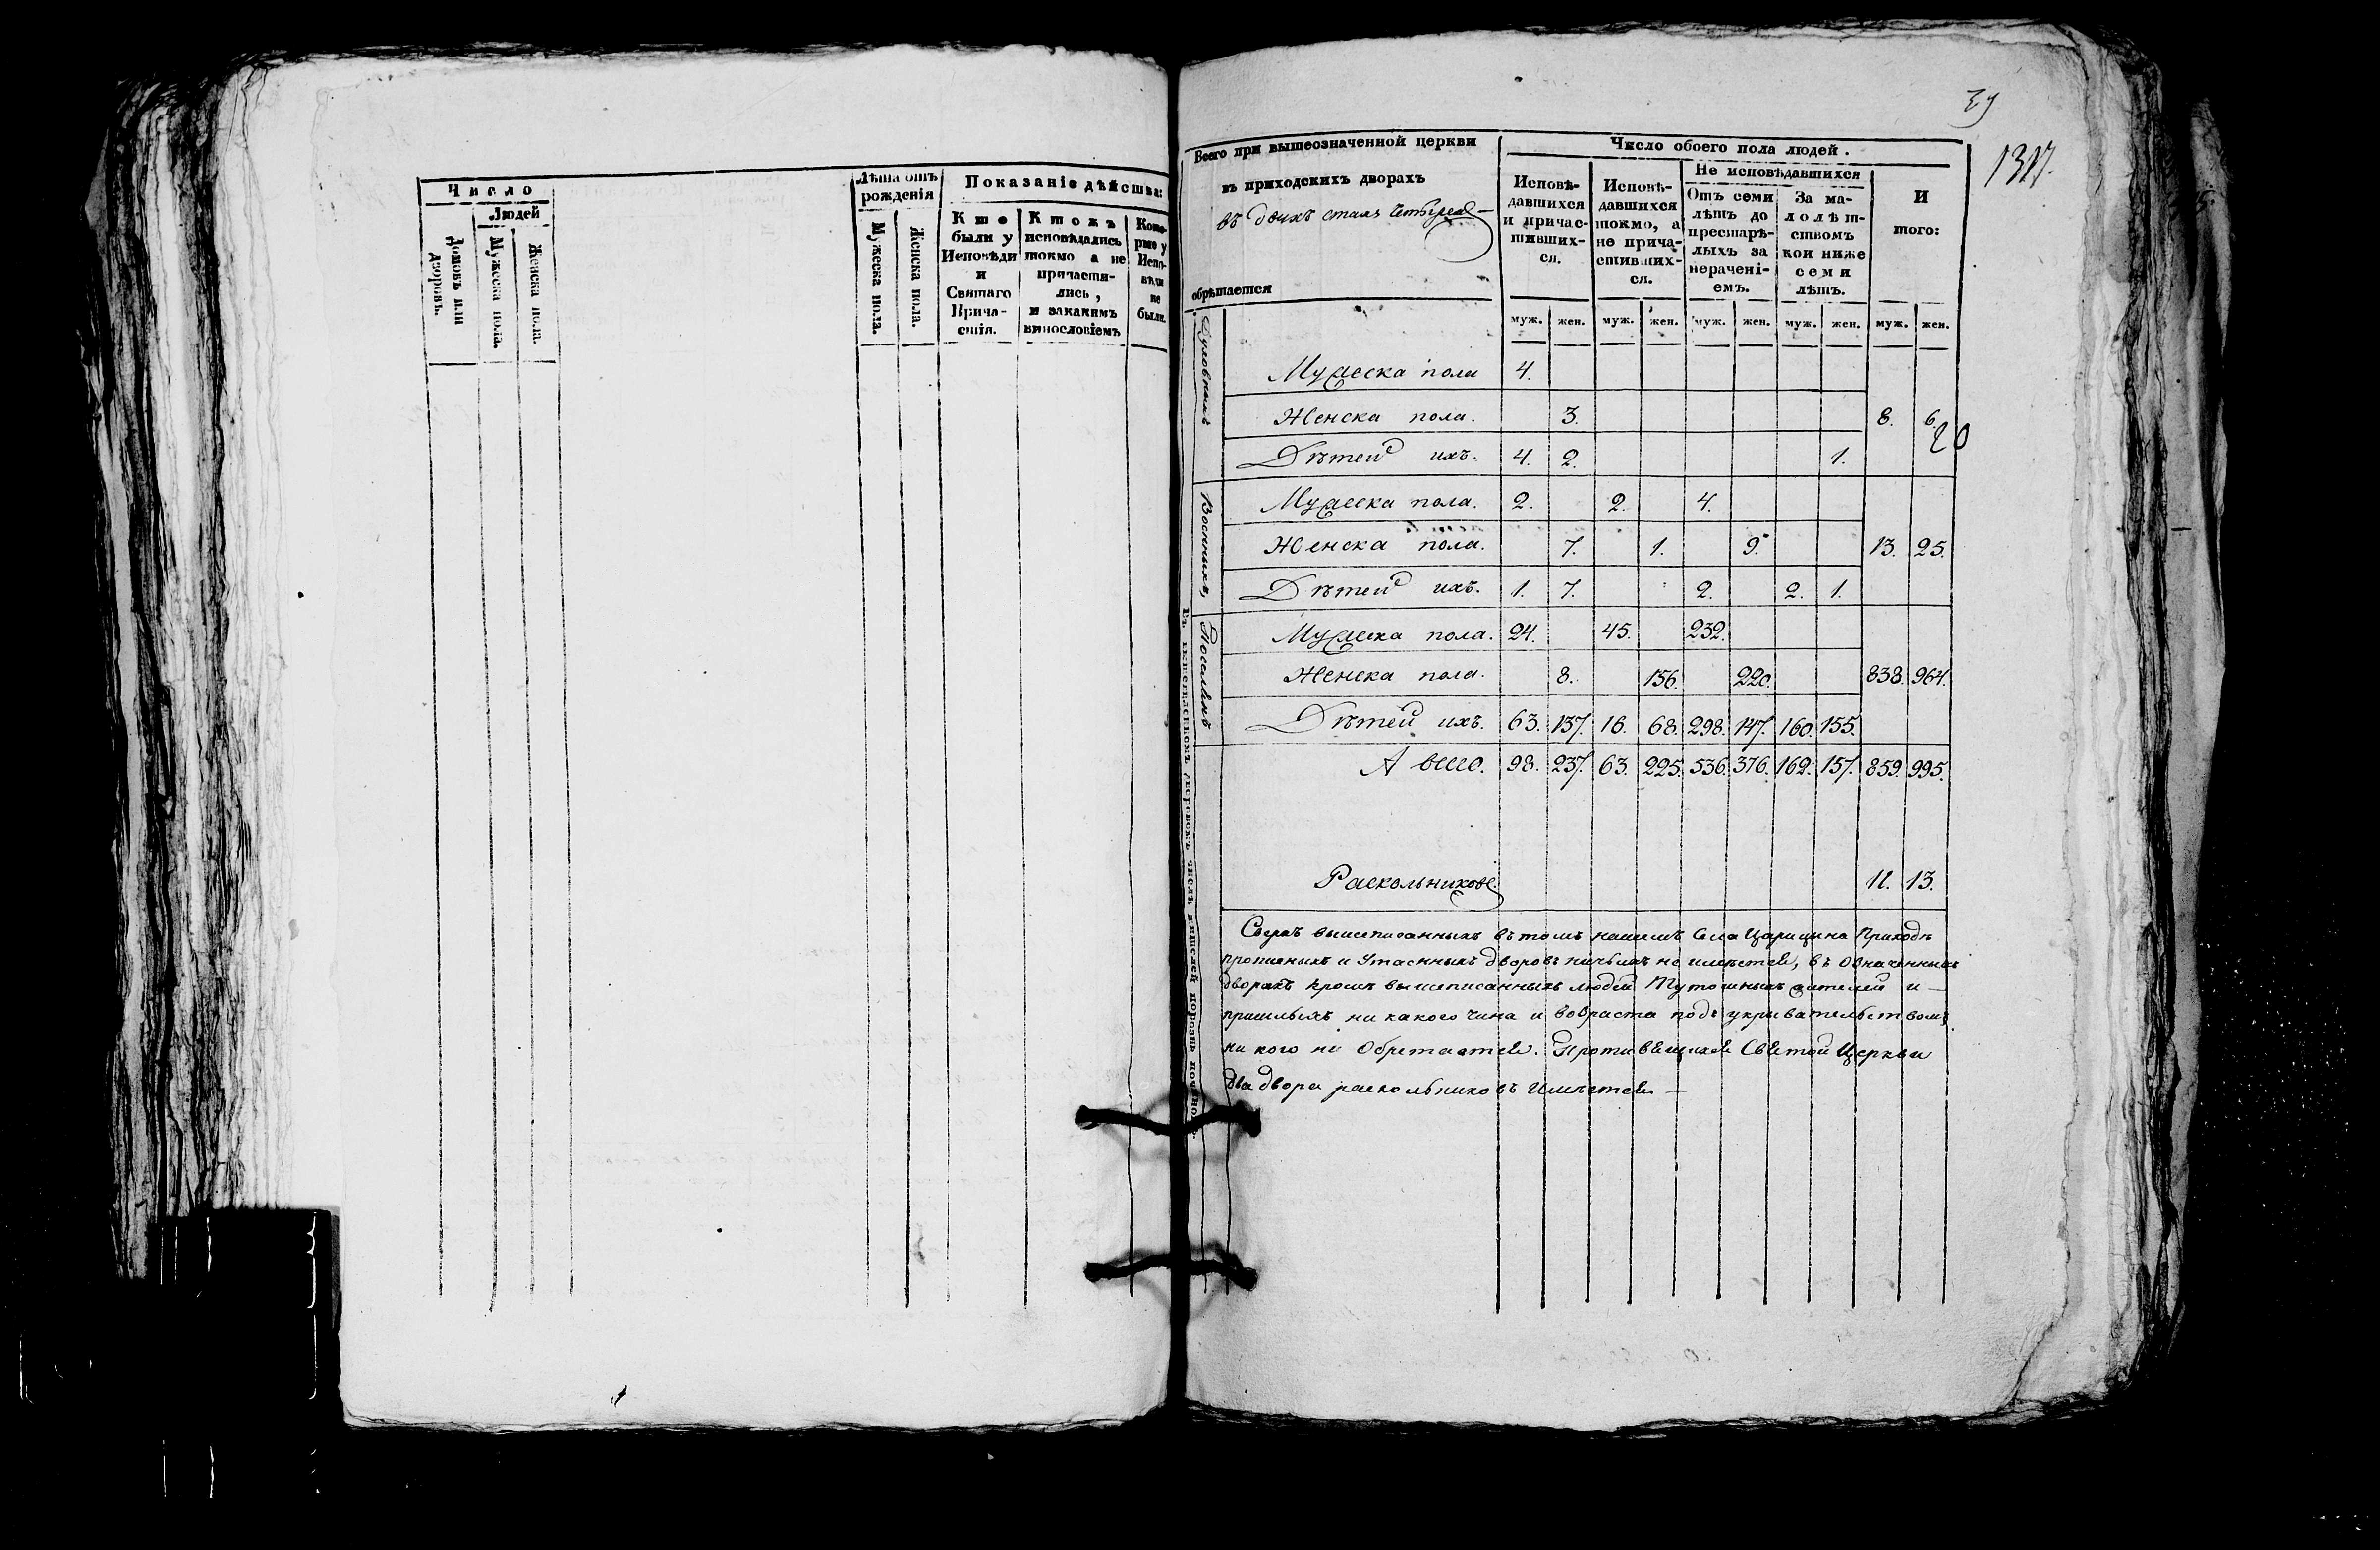 Число
Людей
Домовъ или дворовъ.
Мужеска пола.
Женска пола.
Лѣта отъ рожденія
Мужеска пола.
Женска пола.
Показаніе дѣйства:
Кто были у Исповѣди и Святаго Прича-стія.
Ктожъ исповѣдались токмо а не причасти-лись, и закакимъ винословіемъ
Кото-рые у Испо-вѣди не были.
1317.
Всего при вышеозначенной церкви
въ приходскихъ дворахъ
въ двухъ стахъ четырехъ
обрѣтается
Число обоего пола людей.
Исповѣ-давшихся и причас-тивших-ся.
Исповѣ-давшихся токмо, а не прича-стивших-ся.
Не исповѣдавшихся
Отъ семи лѣтъ до престарѣ-лыхъ за нерачені-емъ.
За ма-лолѣт-ствомъ кои ниже семи лѣтъ.
И того:
муж. жен. муж. жен. муж. жен. муж. жен. муж. жен.
Духовныхъ
Мужеска пола 4.
Женска пола. 3. 8. 6.
20
Дѣтей ихъ. 4. 2. 1.
Военныхъ
Мужеска пола. 2. 2. 4.
Женска пола. 7. 1. 9. 13. 25.
Дѣтей ихъ. 1. 7. 2. 2. 1.
Поселянъ
Мужеска пола. 24. 45. 232.
Женска пола. 8. 156. 220. 838. 964.
Дѣтей ихъ. 63. 137. 16. 68. 298. 147. 160. 155.
А всего. 98. 237. 63. 225. 536. 376. 162. 157. 859. 995.
Раскольниковъ. 11. 13.
Сверхъ вышеписанныхъ въ томъ нашемъ села Царицына Приходѣ
прописныхъ и Утаенныхъ дворовъ ничьихъ не имѣется, въ Означенныхъ
дворахъ кромѣ вышеписанныхъ людей Тутошныхъ жителей и
пришлыхъ ни какого чина и возраста подъ укрывательствомъ
ни кого не Обретается. Противящихся Святой Церкви
два двора раскольниковъ Имѣется